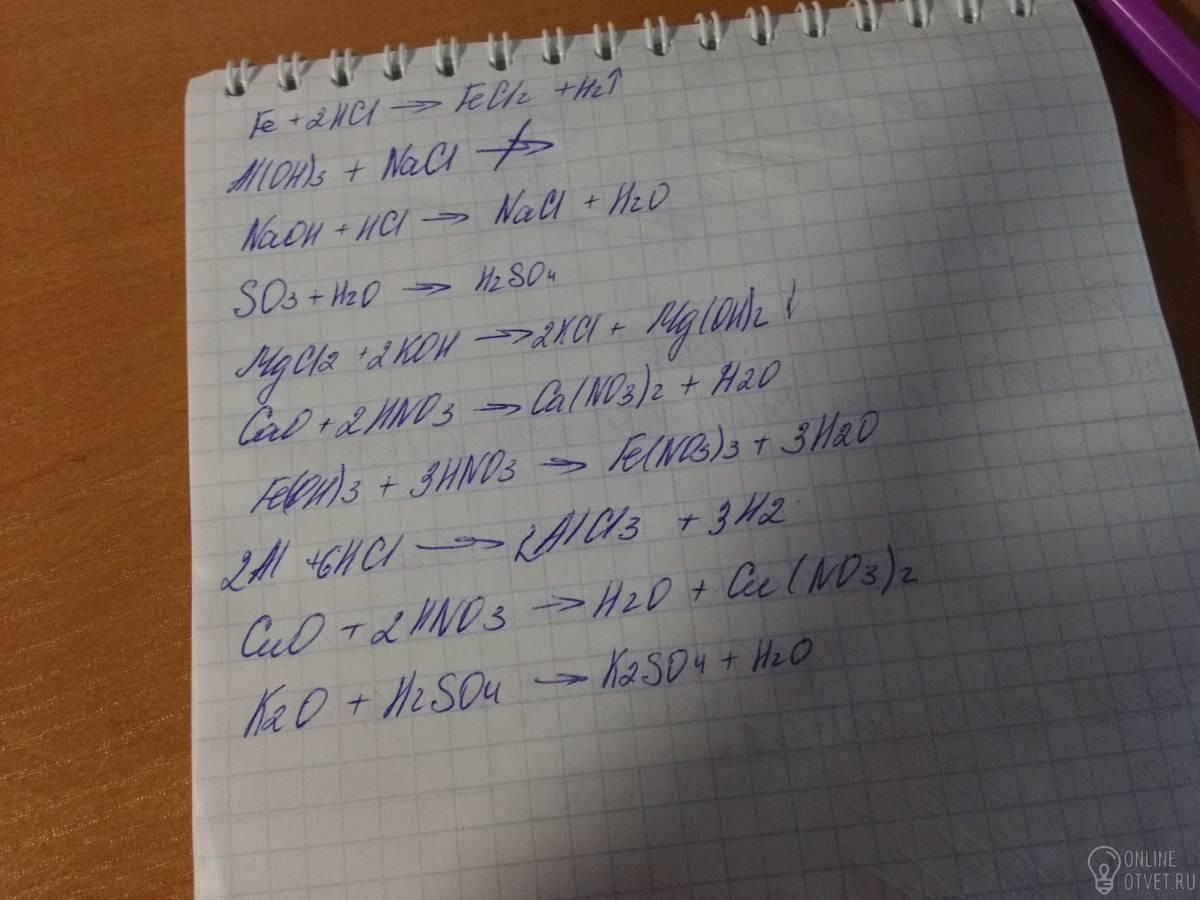 Fe + 2HCl → FeCl2 + H2↑
Al(OH)3 + NaCl ↛
NaOH + HCl → NaCl + H2O
SO3 + H2O → H2SO4
MgCl2 + 2KOH → 2KCl + Mg(OH)2 ↓
CaO + 2HNO3 → Ca(NO3)2 + H2O
Fe(OH)3 + 3HNO3 → Fe(NO3)3 + 3H2O
2Al + 6HCl → 2AlCl3 + 3H2
CuO + 2HNO3 → H2O + Cu(NO3)2
K2O + H2SO4 → K2SO4 + H2O
ONLINE
OTVET.RU